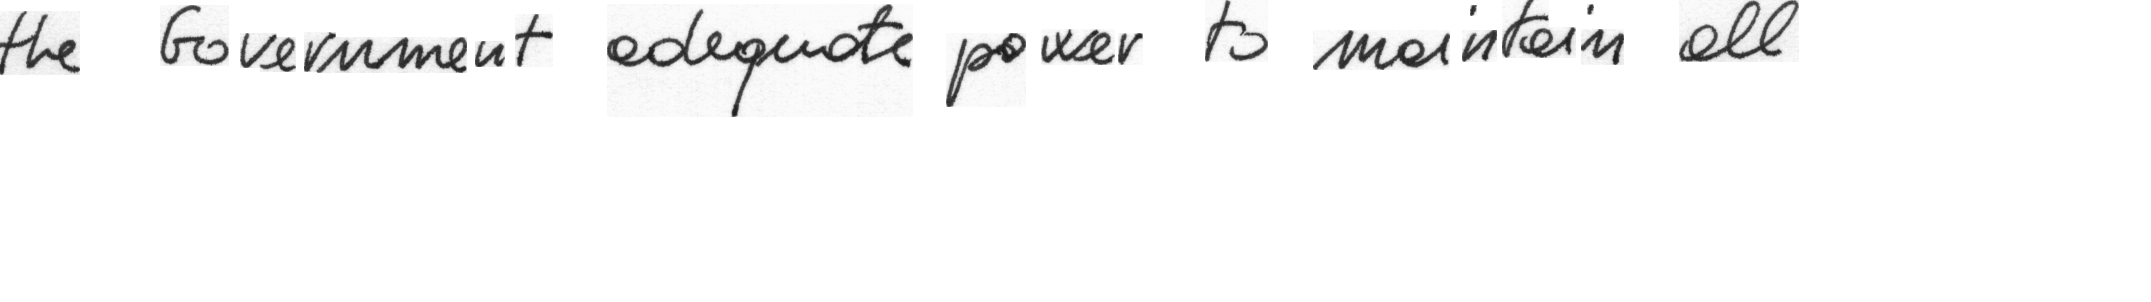 the Government adequate power to maintain all